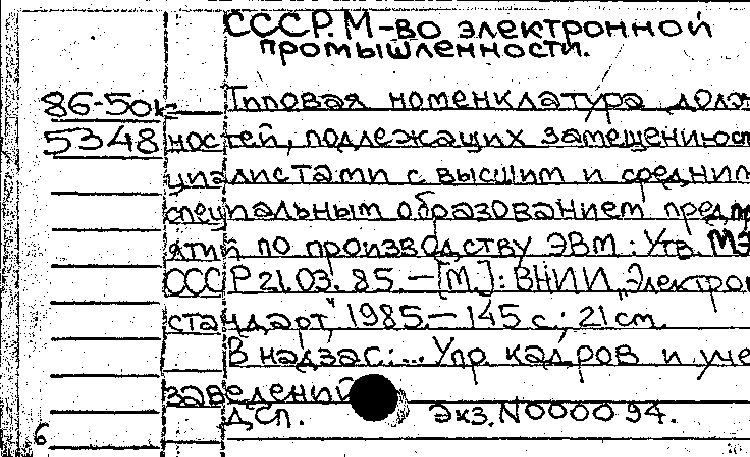 СССР. М-во электронной
промышленности.
86-50к Типовая номенклатура долж
5348 ностей, подлежащих замещению сп
циалистами с высшим и средним
специальным образованием предпр
ятий по производству ЭВМ: Утв. МЭ
СССР 21.03.85.—[М.]: ВНИИ „Электрон
стандарт", 1985.—145 с.; 21 см.
В надзаг.:... Упр. кадров и уче
заведений
ДСП. Экз. N000094.
6